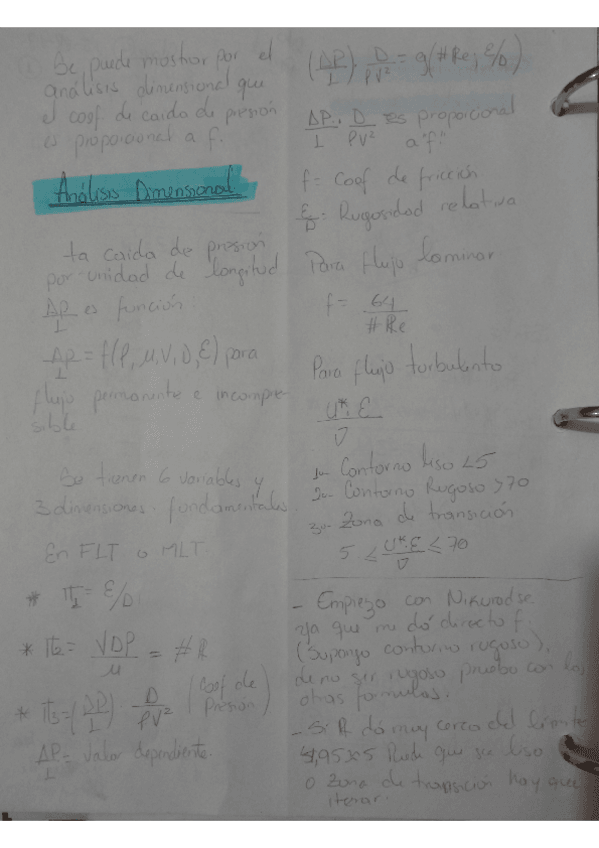 Se puede mostrar por el
análisis dimensional que
el coef. de caida de presión
es proporcional a f.
Análisis Dimensional
La caida de presión
por unidad de longitud
ΔP/L es función:
ΔP/L = f(ρ, μ, V, D, ε) para
flujo permanente e incompre-
sible
Se tienen 6 variables y
3 dimensiones fundamentales.
En FLT o MLT
* π1 = ε/D
* π2 = VDρ/μ = #R
* π3 = (ΔP/L) D/ρV² (Coef de Presión)
ΔP/L = Valor dependiente.
(ΔP/L) · D/ρV² = g(#Re; ε/D)
ΔP/L · D/ρV² Es proporcional
a "f".
f = Coef de fricción
ε/D: Rugosidad relativa
Para flujo laminar
f = 64/#Re
Para flujo turbulento
U*·ε/ν
1- Contorno liso <5
2- Contorno Rugoso >70
3- Zona de transición
5 ≤ U*·ε/ν ≤ 70
- Empiezo con Nikuradse
ya que me dá directo f
(Supongo contorno rugoso),
de no ser rugoso pruebo con las
otras formulas.
- Si R dá muy cerca del límite
4,95≈5 Puede que sea liso
o Zona de transición hay que
iterar.